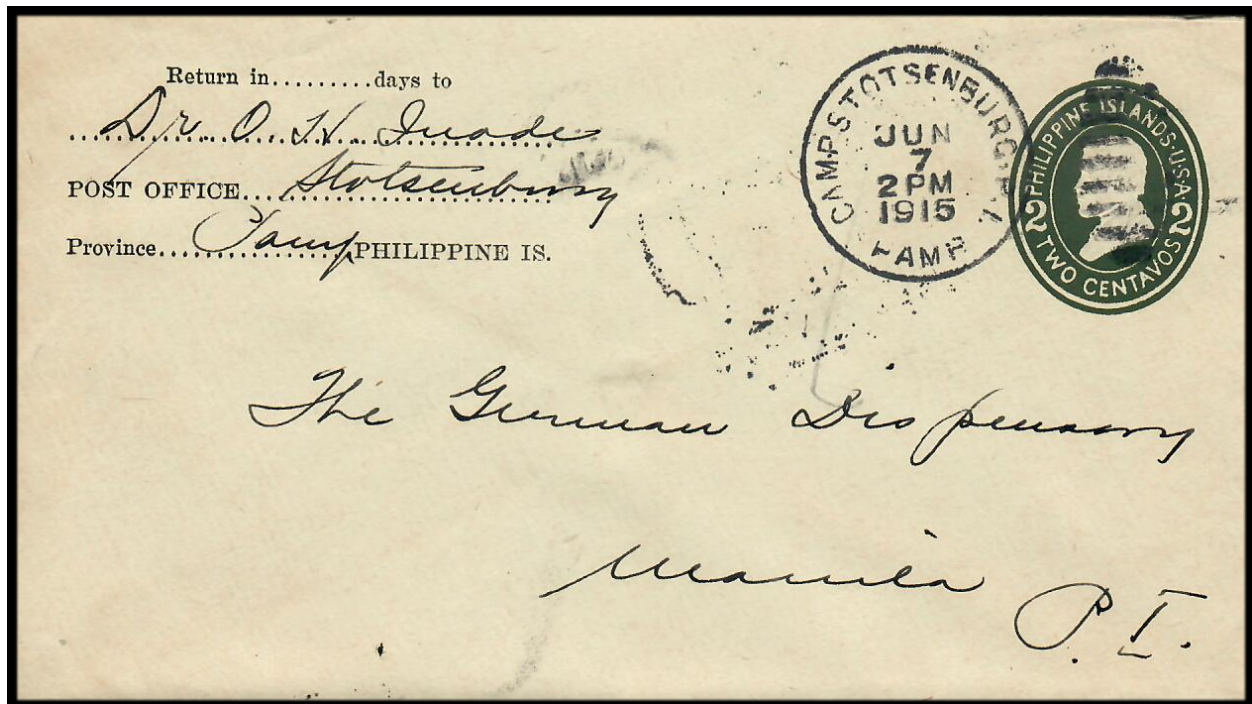 Return in.........days to
Dr. O. H.
POST OFFICE... Stotsenburg
Province... Pamp PHILIPPINE IS.
CAMP STOTSENBURG, P.I.
JUN
7
2 PM
1915
PAMP
PHILIPPINE ISLANDS·U·S·A·
2 2
TWO CENTAVOS
The German Dispensary
Manila
P. I.